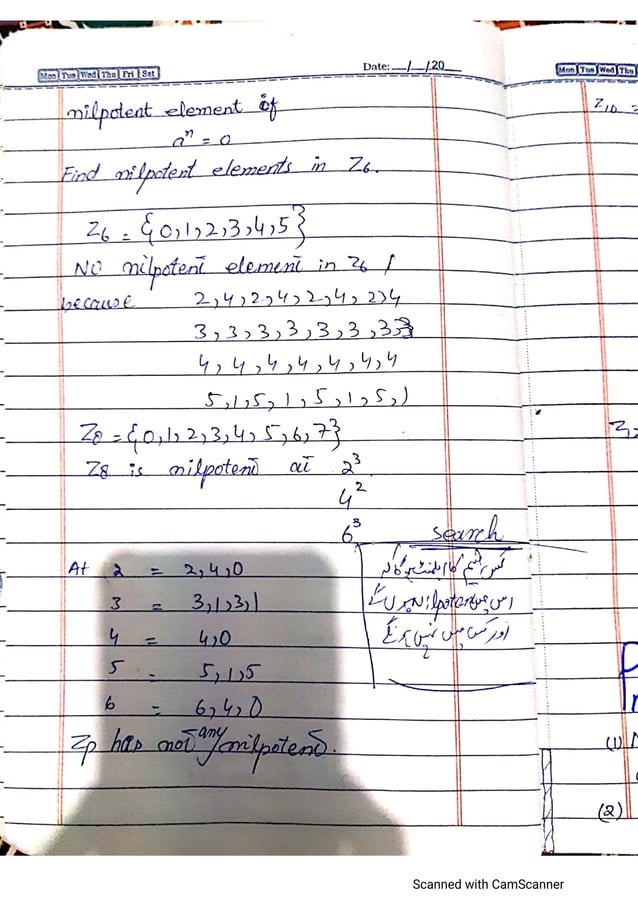 Mon Tue Wed Thu Fri Sat
Date: __/__/20__
nilpotent element if
aⁿ = 0
Find nilpotent elements in Z6.
Z6 = {0,1,2,3,4,5}
NO nilpotent element in Z6 /
because 2,4,2,4,2,4,2,4
3,3,3,3,3,3,3,3
4,4,4,4,4,4,4
5,1,5,1,5,1,5,1
Z8 = {0,1,2,3,4,5,6,7}
Z8 is nilpotent at 2³
4²
6³
At 2 = 2,4,0
3 = 3,1,3,1
4 = 4,0
5 = 5,1,5
6 = 6,4,0
Zp has not any nilpotent.
search
کس قسم کا
اس میں Nilpotent ہوں گے
اور کس میں نہیں ہوں گے
Mon Tue Wed Thu
Z10 =
(1)
(2)
Scanned with CamScanner